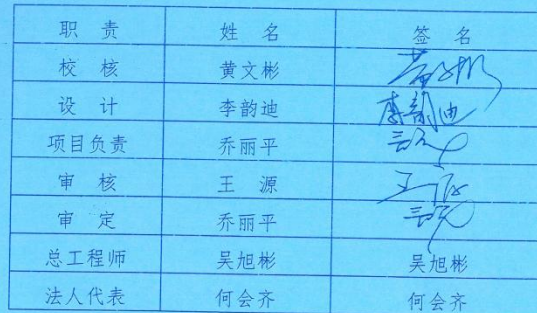 职 责 姓 名 签 名
校 核 黄文彬
设 计 李韵迪 李韵迪
项目负责 乔丽平
审 核 王 源
审 定 乔丽平
总工程师 吴旭彬 吴旭彬
法人代表 何会齐 何会齐